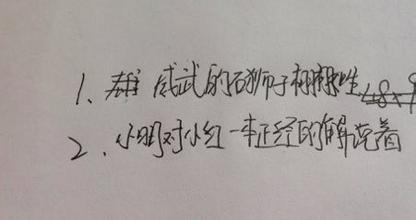 1、雄 威武的石狮子栩栩如生
2、小明对小红一本正经的解说着